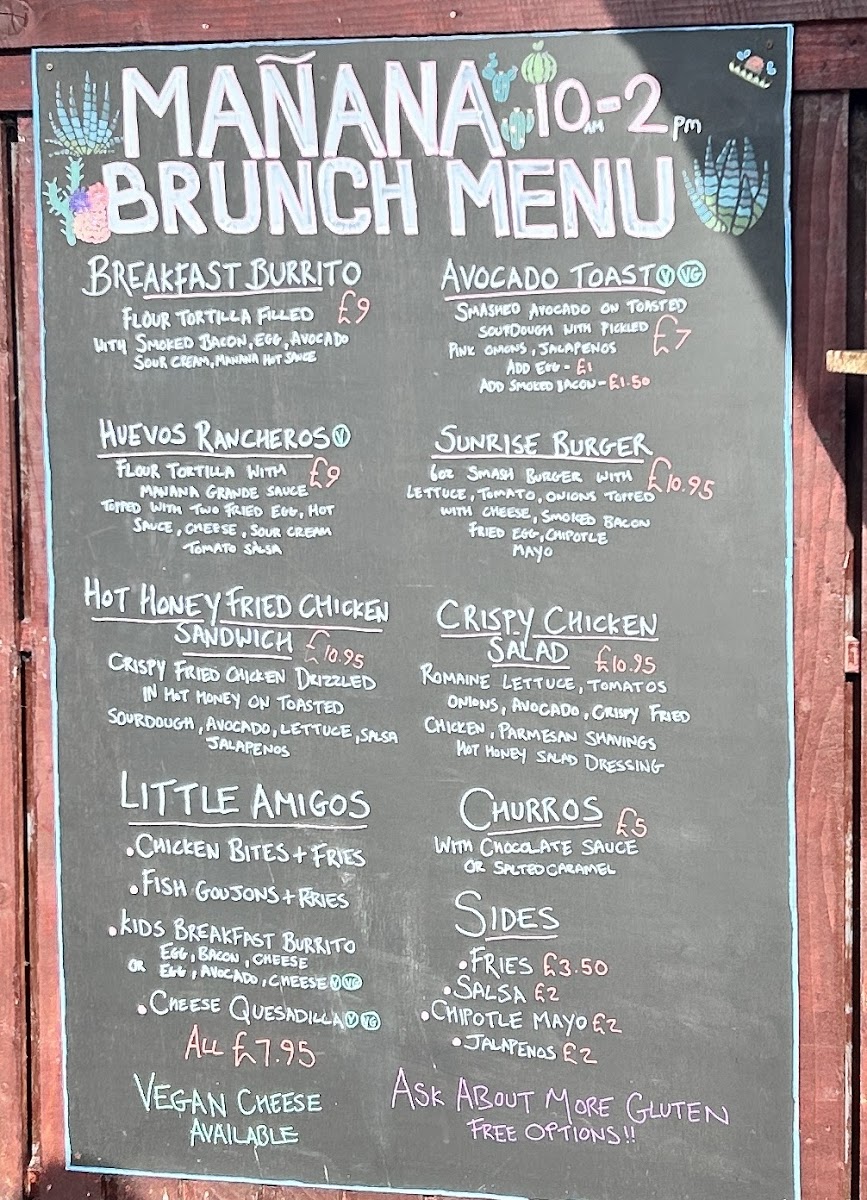 MAÑANA 10AM-2pm
BRUNCH MENU
BREAKFAST BURRITO
FLOUR TORTILLA FILLED £9
WITH SMOKED BACON, EGG, AVOCADO
SOUR CREAM, MANANA HOT SAUCE
HUEVOS RANCHEROS V
FLOUR TORTILLA WITH £9
MANANA GRANDE SAUCE
TOPPED WITH TWO FRIED EGG, HOT
SAUCE, CHEESE, SOUR CREAM
TOMATO SALSA
HOT HONEY FRIED CHICKEN
SANDWICH £10.95
CRISPY FRIED CHICKEN DRIZZLED
IN HOT HONEY ON TOASTED
SOURDOUGH, AVOCADO, LETTUCE, SALSA
JALAPENOS
LITTLE AMIGOS
• CHICKEN BITES + FRIES
• FISH GOUJONS + FRIES
• KIDS BREAKFAST BURRITO
EGG, BACON, CHEESE
OR EGG, AVOCADO, CHEESE V VG
• CHEESE QUESADILLA V VG
ALL £7.95
VEGAN CHEESE
AVAILABLE
AVOCADO TOAST V VG
SMASHED AVOCADO ON TOASTED
SOURDOUGH WITH PICKLED
PINK ONIONS, JALAPENOS £7
ADD EGG - £1
ADD SMOKED BACON - £1.50
SUNRISE BURGER
6oz SMASH BURGER WITH £10.95
LETTUCE, TOMATO, ONIONS TOPPED
WITH CHEESE, SMOKED BACON
FRIED EGG, CHIPOTLE
MAYO
CRISPY CHICKEN
SALAD £10.95
ROMAINE LETTUCE, TOMATOS
ONIONS, AVOCADO, CRISPY FRIED
CHICKEN, PARMESAN SHAVINGS
HOT HONEY SALAD DRESSING
CHURROS £5
WITH CHOCOLATE SAUCE
OR SALTED CARAMEL
SIDES
• FRIES £3.50
• SALSA £2
• CHIPOTLE MAYO £2
• JALAPENOS £2
ASK ABOUT MORE GLUTEN
FREE OPTIONS!!